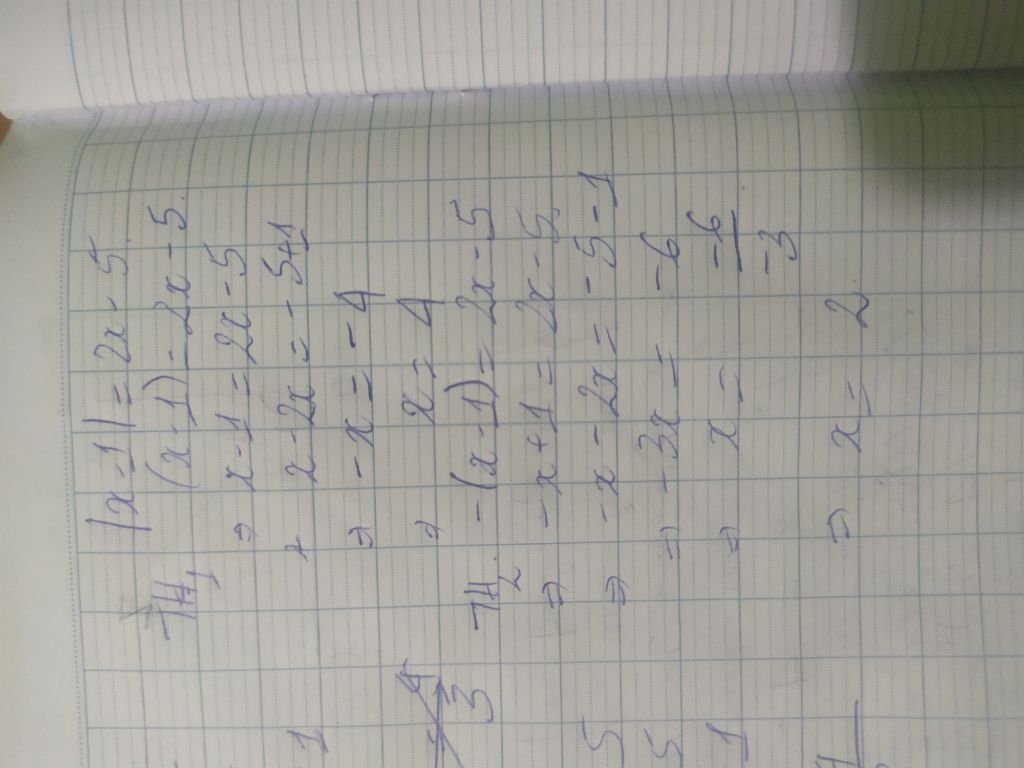 |x-1| = 2x-5.
TH1 (x-1) = 2x-5.
⇒ x-1 = 2x-5
⇒ x-2x = -5+1
⇒ -x = -4
⇒ x = 4
TH2. -(x-1) = 2x-5
⇒ -x+1 = 2x-5.
⇒ -x-2x = -5-1
⇒ -3x = -6
⇒ x = -6/-3
⇒ x = 2.
1
3
5
5
1